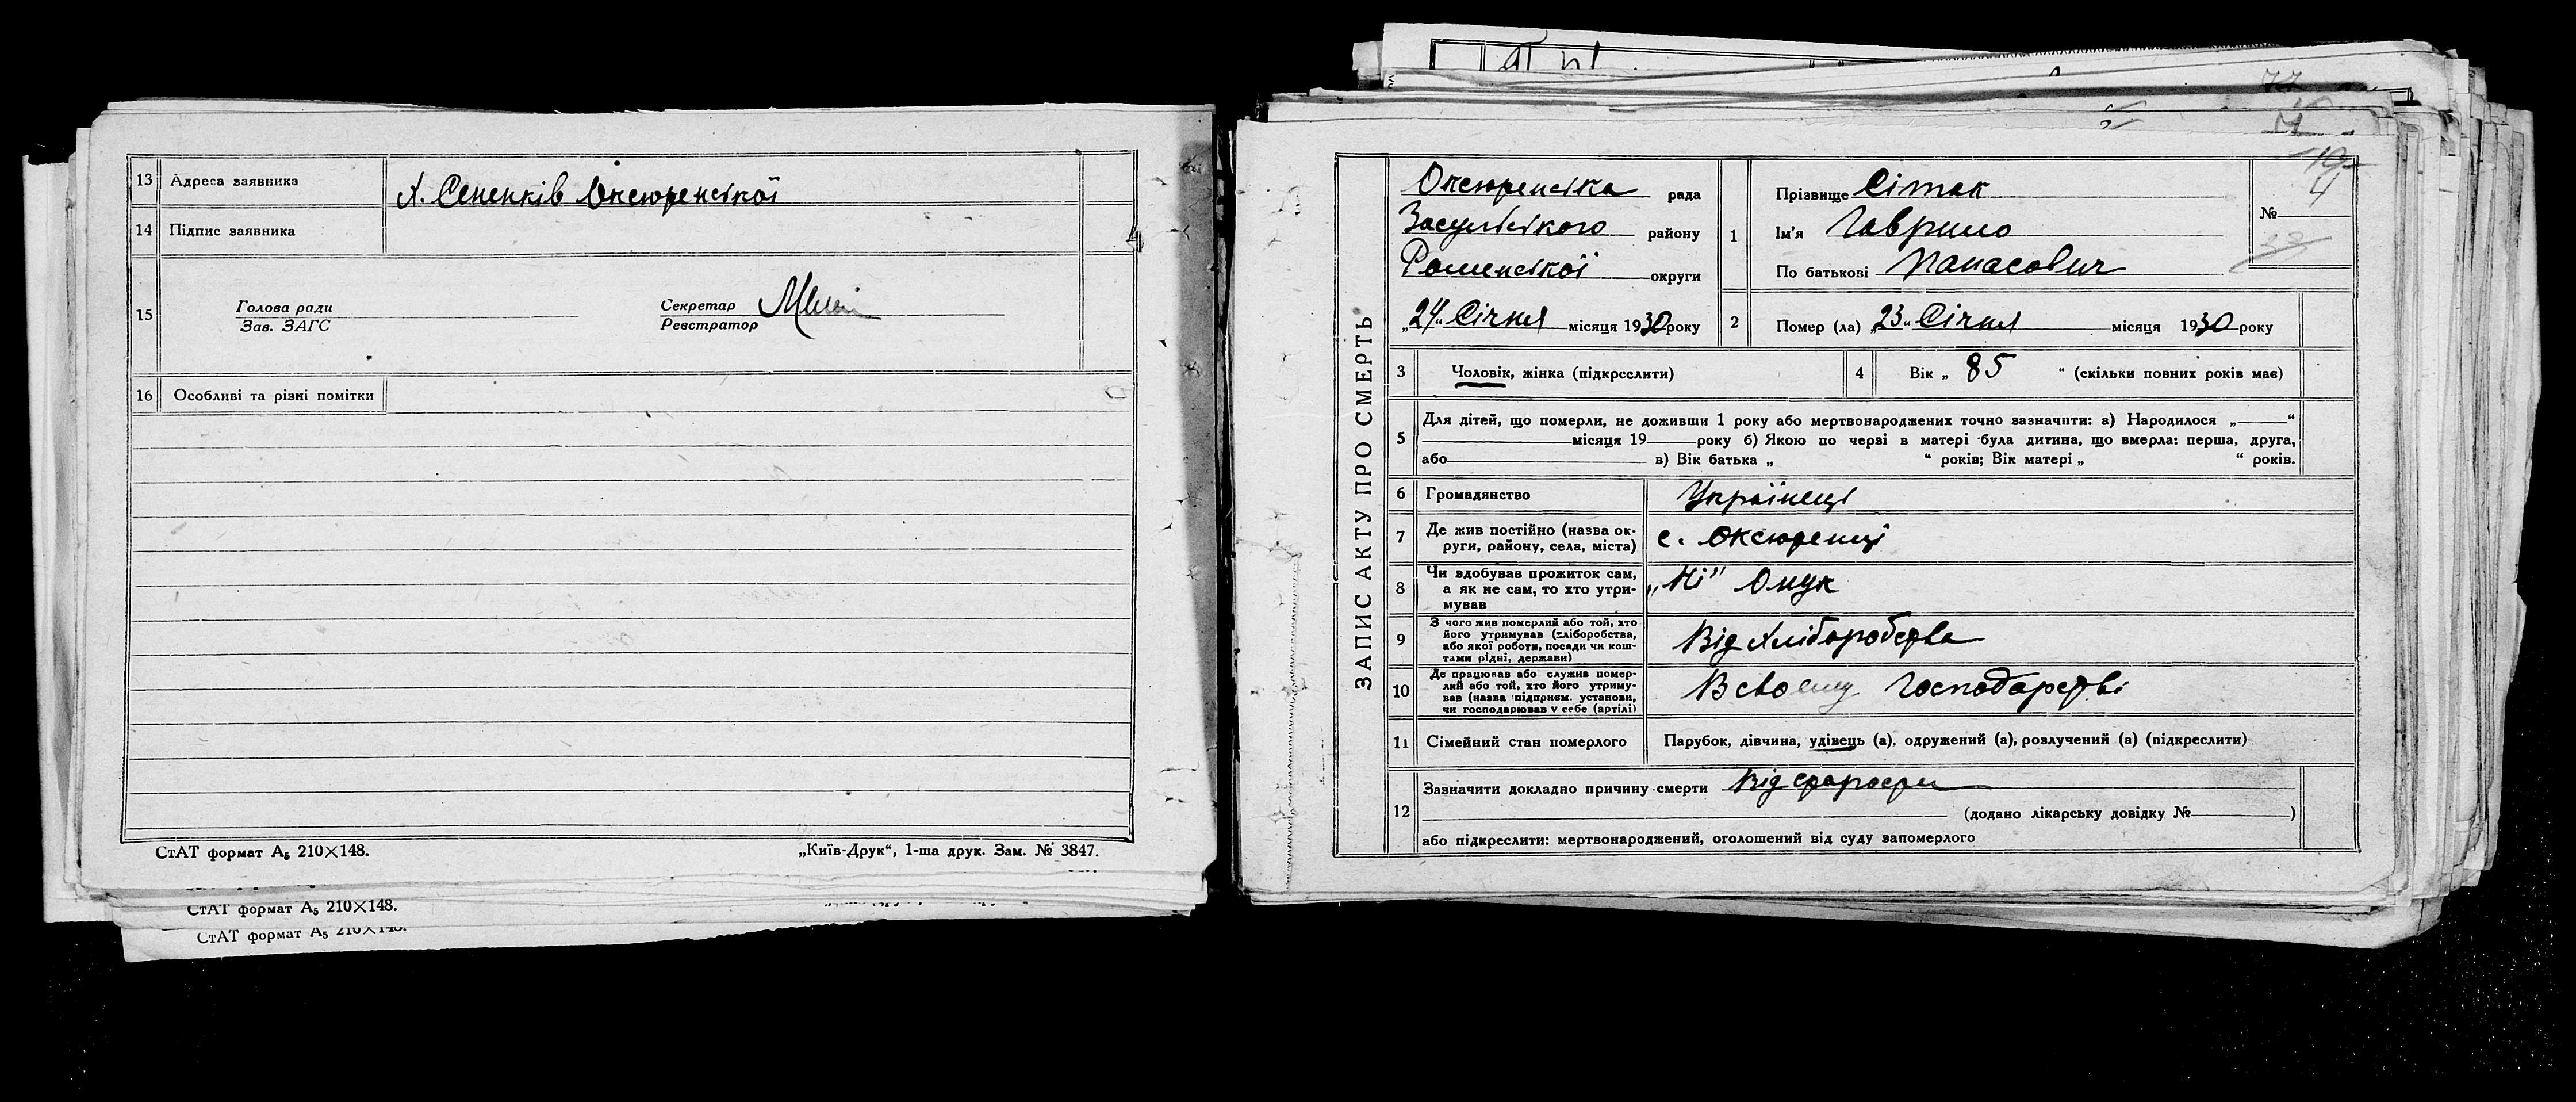 13 Адреса заявника х. Сененків Оксюренської
14 Підпис заявника
15 Голова ради
Зав. ЗАГС
Секретар
Реєстратор
16 Особливі та різні помітки
СтАТ формат А₅ 210×148.
„Київ-Друк“, 1-ша друк. Зам. № 3847.
СтАТ формат А₅ 210×148.
СтАТ формат А₅ 210×148.
ЗАПИС АКТУ ПРО СМЕРТЬ
Оксюренська рада
Засульського району
Роменської округи
„24“ Січня місяця 1930 року
1 Прізвище Сітак
Ім'я Гаврило
По батькові Панасович
№ 4
2 Помер (ла) „23“ Січня місяця 1930 року
3 Чоловік, жінка (підкреслити)
4 Вік „ 85 “ (скільки повних років має)
5 Для дітей, що померли, не доживши 1 року або мертвонароджених точно зазначити: а) Народилося „ “
місяця 19 року б) Якою по черзі в матері була дитина, що вмерла: перша, друга,
або в) Вік батька „ “ років; Вік матері „ “ років.
6 Громадянство Українець
7 Де жив постійно (назва ок-
руги, району, села, міста) с. Оксюренці
8 Чи вдобував прожиток сам,
а як не сам, то хто утри-
мував „Ні“ Онук
9 З чого жив померлий або той, хто
його утримував (хліборобства,
або якої роботи, посади чи кош-
тами рідні, держави) Від Хліборобства
10 Де працював або служив помер-
лий або той, хто його утриму-
вав (назва підприєм. установи,
чи господарював у себе (артілі) В своєму господарстві
11 Сімейний стан померлого Парубок, дівчина, удівець (а), одружений (а), розлучений (а) (підкреслити)
12 Зазначити докладно причину смерти Від старости
(додано лікарську довідку № )
або підкреслити: мертвонароджений, оголошений від суду запомерлого